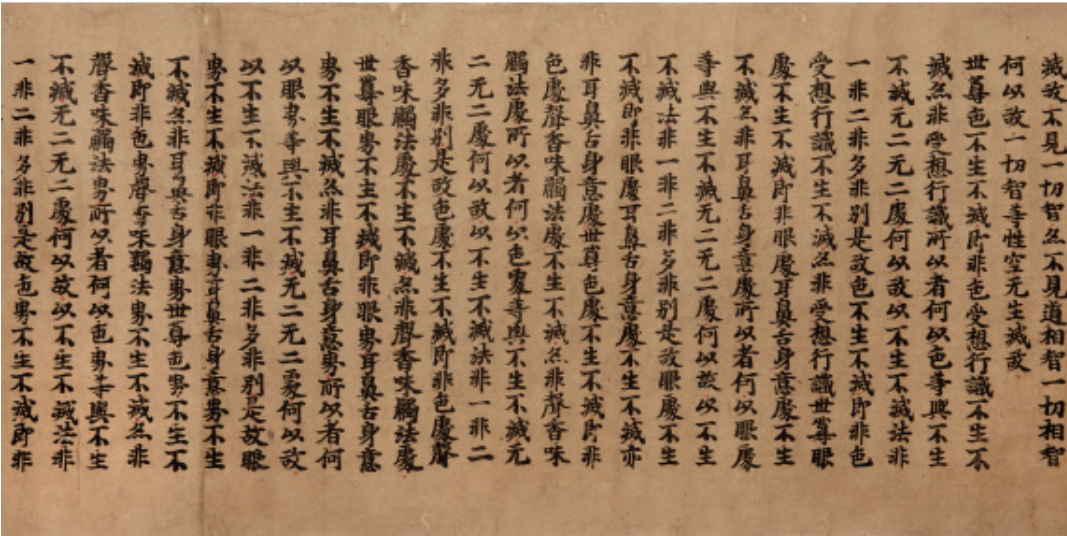 滅故不見一切智亦不見道相智一切相智
何以故一切智等性空无生滅故
世尊色不生不滅即非色受想行識不生不
滅亦非受想行識所以者何以色等與不生
不滅无二无二處何以故以不生不滅法非
一非二非多非別是故色不生不滅即非色
受想行識不生不滅亦非受想行識世尊眼
處不生不滅即非眼處耳鼻舌身意處不生
不滅亦非耳鼻舌身意處所以者何以眼處
等與不生不滅无二无二處何以故以不生
不滅法非一非二非多非別是故眼處不生
不滅即非眼處耳鼻舌身意處不生不滅亦
非耳鼻舌身意處世尊色處不生不滅即非
色處聲香味觸法處不生不滅亦非聲香味
觸法處所以者何以色處等與不生不滅无
二无二處何以故以不生不滅法非一非二
非多非別是故色處不生不滅即非色處聲
香味觸法處不生不滅亦非聲香味觸法處
世尊眼界不生不滅即非眼界耳鼻舌身意
界不生不滅亦非耳鼻舌身意界所以者何
以眼界等與不生不滅无二无二處何以故
以不生不滅法非一非二非多非別是故眼
界不生不滅即非眼界耳鼻舌身意界不生
不滅亦非耳鼻舌身意界世尊色界不生不
滅即非色界聲香味觸法界不生不滅亦非
聲香味觸法界所以者何以色界等與不生
不滅无二无二處何以故以不生不滅法非
一非二非多非別是故色界不生不滅即非